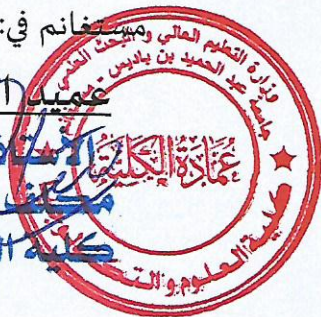 مستغانم في:
عميد ا
الأستاذ
مكلف
كلية ال
وزارة التعليم العالي والبحث العلمي
جامعة عبد الحميد بن باديس
عمادة الكلية
كلية العلوم و